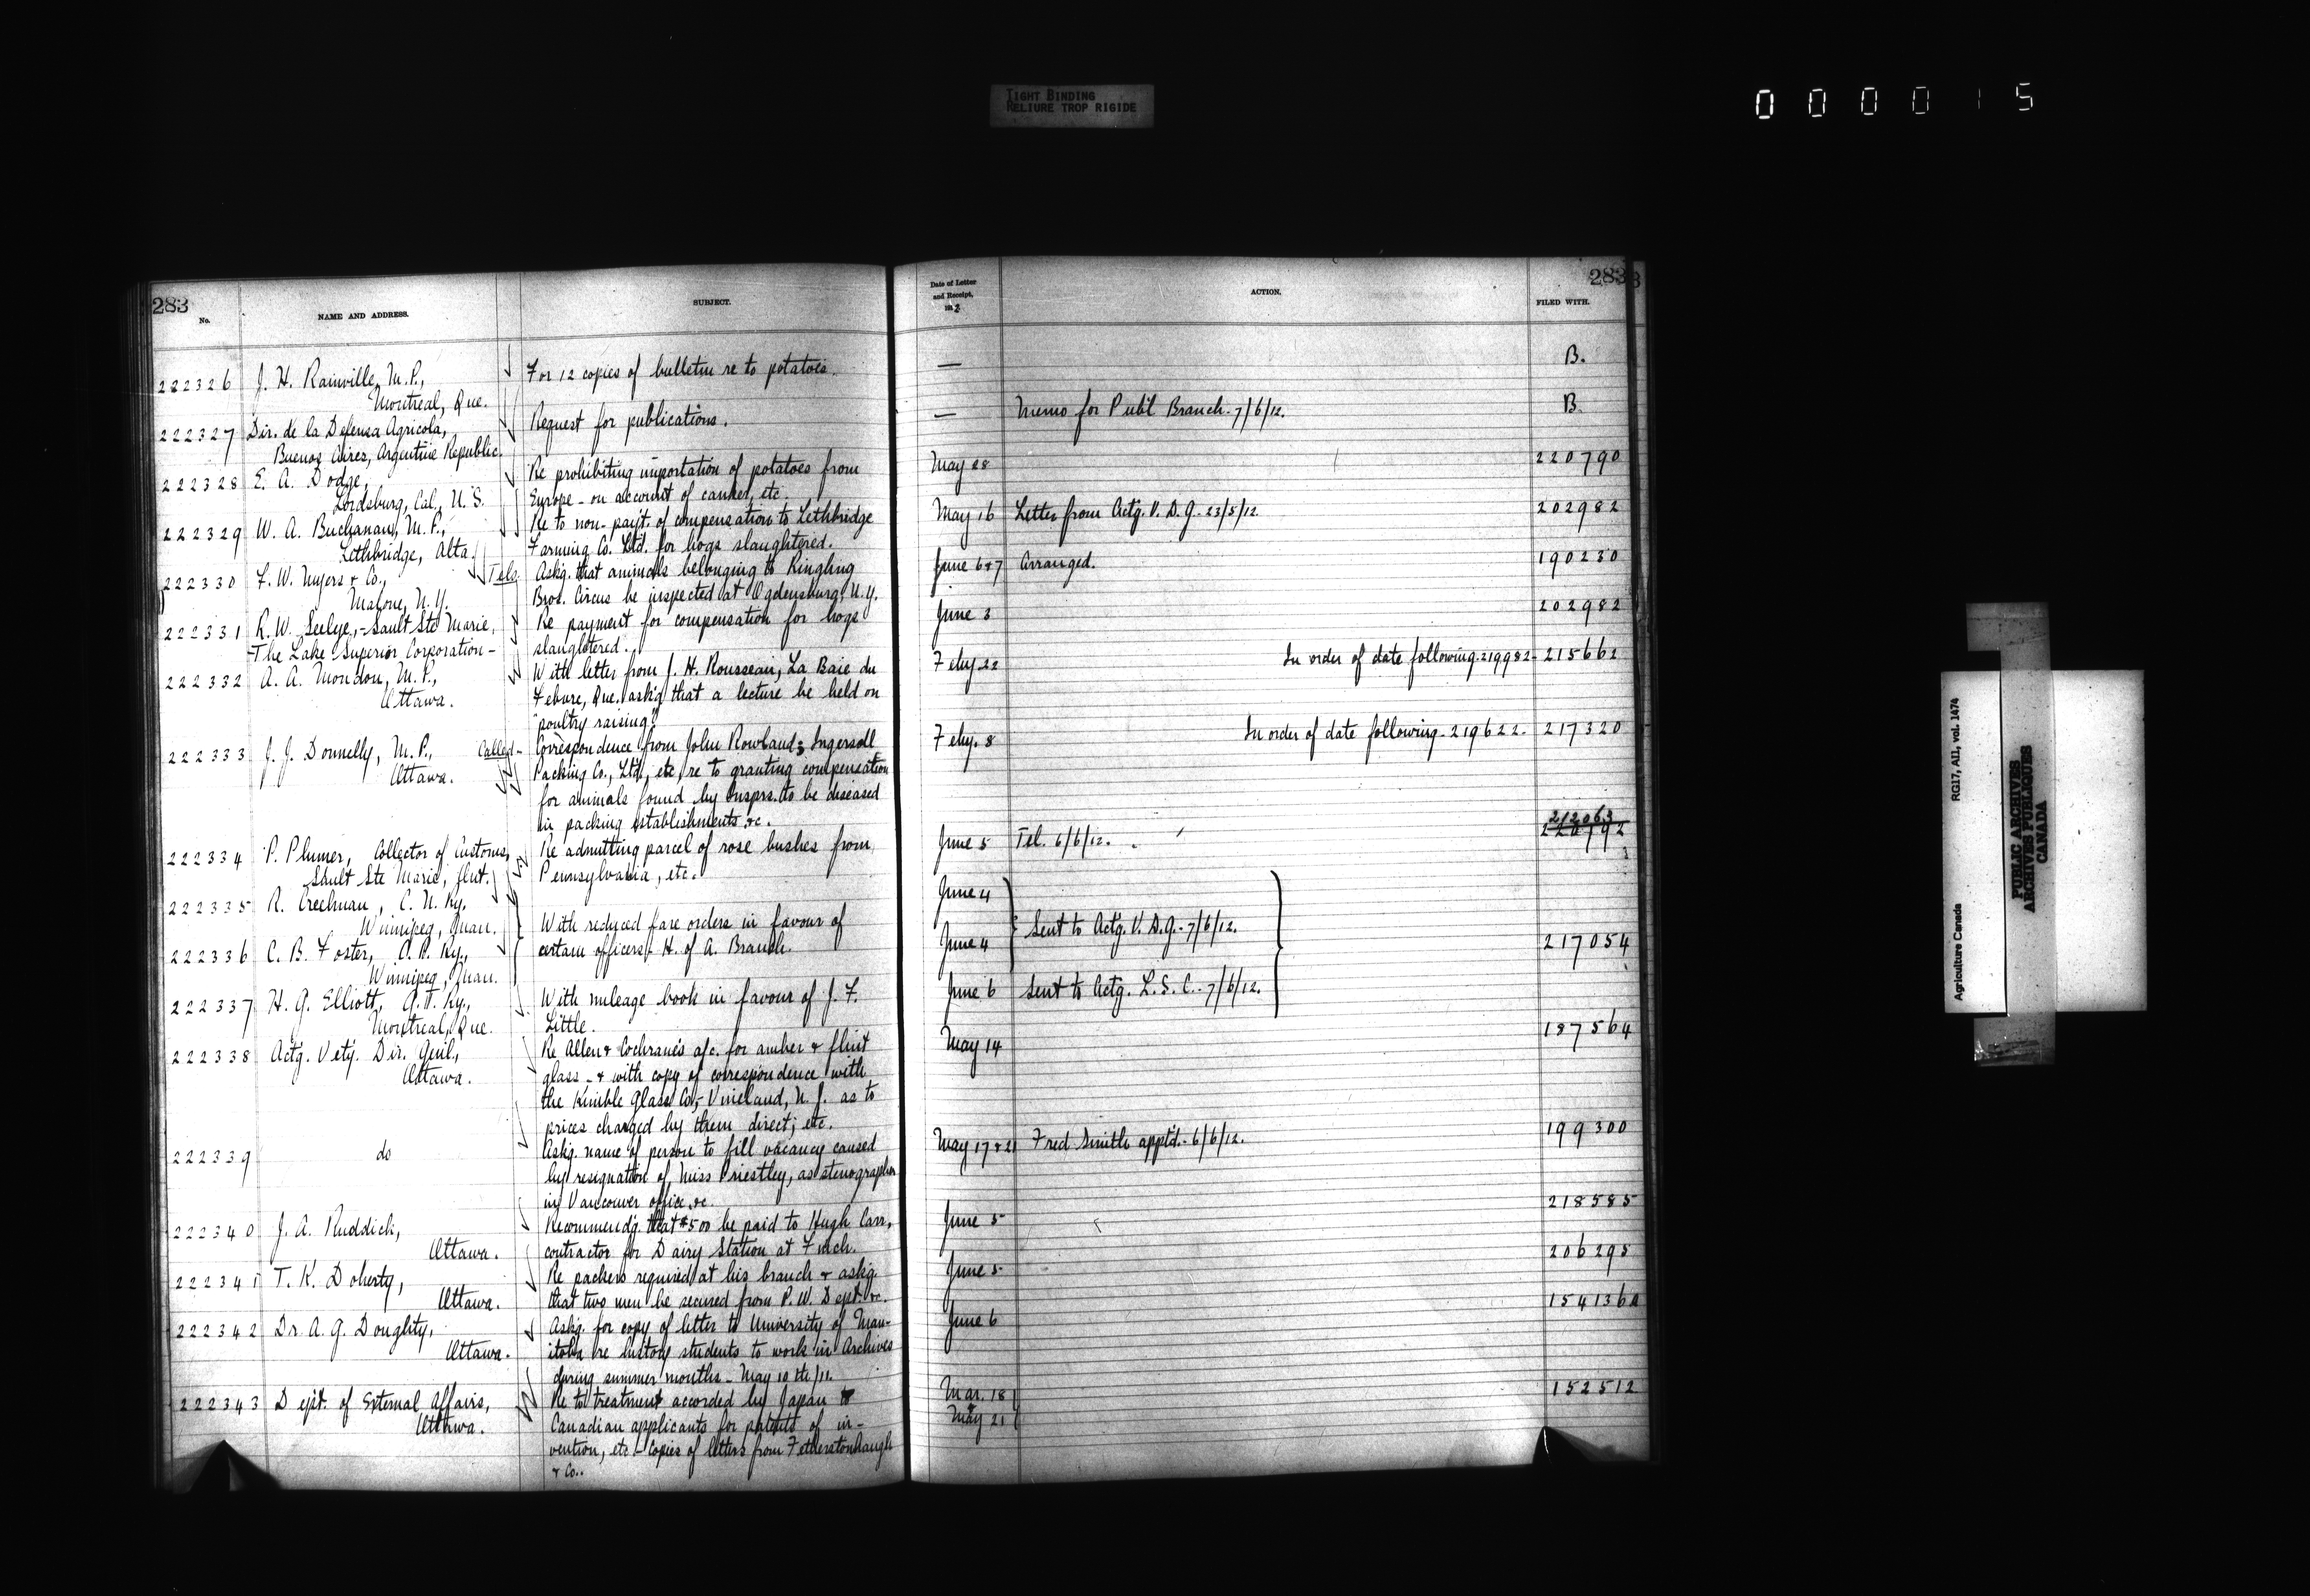 TIGHT BINDING
RELIURE TROP RIGIDE
000015
283
No.
NAME AND ADDRESS.
SUBJECT.
222326 J. H. Rainville, M.P., For 12 copies of bulletin re to potatoes.
Montreal, Que.
222327 Dir. de la Defensa Agricola, Request for publications.
Buenos Aires, Argentine Republic.
222328 E. A. Dodge, Re prohibiting importation of potatoes from
Lordsburg, Cal., U.S. Europe - on account of canker, etc.
222329 W. A. Buchanan, M.P., Re to non-payt. of compensation to Lethbridge
Lethbridge, Alta. Farming Co. Ltd. for hogs slaughtered.
222330 F. W. Myers & Co., Tels. Askg. that animals belonging to Ringling
Malone, N.Y. Bros. Circus be inspected at Ogdensburg, N.Y.
222331 R. W. Seelye, - Sault Ste Marie, Re payment for compensation for hogs
-The Lake Superior Corporation- slaughtered.
222332 A. A. Mondou, M.P., With letter from J. H. Rousseau, La Baie du
Ottawa. Febure, Que. askg that a lecture be held on
"poultry raising".
222333 J. J. Donnelly, M.P., Called- Correspondence from John Rowland; Ingersoll
Ottawa. Packing Co., Ltd., etc, re to granting compensation
for animals found by Insprs. to be diseased
in packing establishments &c.
222334 P. Plumer, Collector of Customs, Re admitting parcel of rose bushes from
Sault Ste Marie, Ont. Pennsylvania, etc.
222335 R. Creelman, C. N. Ry.
Winnipeg, Man. With reduced fare orders in favour of
222336 C. B. Foster, C. P. Ry., certain officers - H. of A. Branch.
Winnipeg, Man.
222337 H. G. Elliott, G. T. Ry., With mileage book in favour of J. F.
Montreal, Que. Little.
222338 Actg. Vety. Dir. Genl., Re Allen & Cochrane's a/c. for amber & flint
Ottawa. glass - & with copy of correspondence with
the Kimble Glass Co, - Vineland, N. J. as to
prices charged by them direct; etc.
222339 do Askg. name of person to fill vacancy caused
by resignation of Miss Priestley, as stenographer
in Vancouver office, &c.
222340 J. A. Ruddick, Recommendg. that $500 be paid to Hugh Carr,
Ottawa. contractor for Dairy Station at Finch.
222341 T. K. Doherty, Re packers required at his branch & askg.
Ottawa. that two men be secured from P. W. Dept. &c.
222342 Dr. A. G. Doughty, Askg. for copy of letter to University of Man-
Ottawa. itoba re history students to work in Archives
during summer months - May 10th/11.
222343 Dept. of External Affairs, Re to treatment accorded by Japan to
Ottawa. Canadian applicants for patents of in-
vention, etc - Copies of letters from Fetherstonhaugh
& Co..
283
Date of Letter
and Receipt,
191 2
ACTION.
FILED WITH.
— B.
— Memo for Publ. Branch - 7/6/12. B.
May 28 220790
May 16 Letter from Actg. V. D. G. - 23/5/12. 202982
June 6&7 Arranged. 190230
June 3 202982
Feby 22 In order of date following - 219982 - 215662
Feby. 8 In order of date following - 219622 - 217320
212063
June 5 Tel. 6/6/12. 220792
June 4
Sent to Actg. V. D. G. - 7/6/12.
June 4 217054
June 6 Sent to Actg. L. S. C. - 7/6/12.
May 14 187564
May 17 & 21 Fred Smith apptd. - 6/6/12. 199300
June 5 218585
June 5 206295
June 6 154136A
Mar. 18 152512
&
May 21
RG17, AII, vol. 1474
Agriculture Canada
PUBLIC ARCHIVES
ARCHIVES PUBLIQUES
CANADA